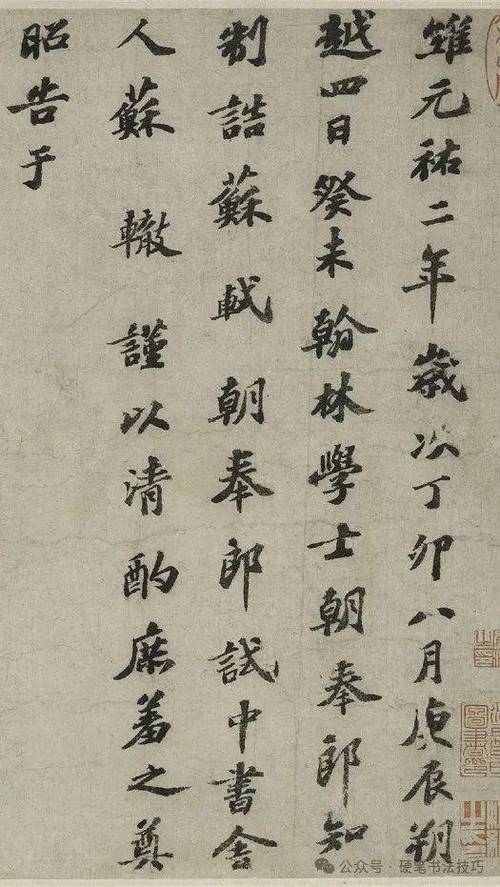 維元祐二年歲次丁卯八月庚辰朔
越四日癸未翰林學士朝奉郎知
制誥蘇軾朝奉郎試中書舍
人蘇轍謹以清酌庶羞之奠
昭告于
公众号·硬笔书法技巧